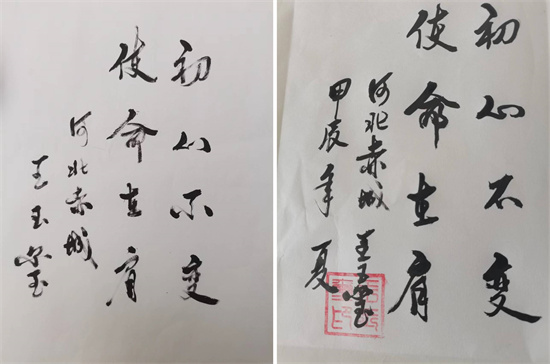 初心不变
使命在肩
河北赤城
王玉玺
初心不变
使命在肩
河北赤城 王玉玺
甲辰年夏